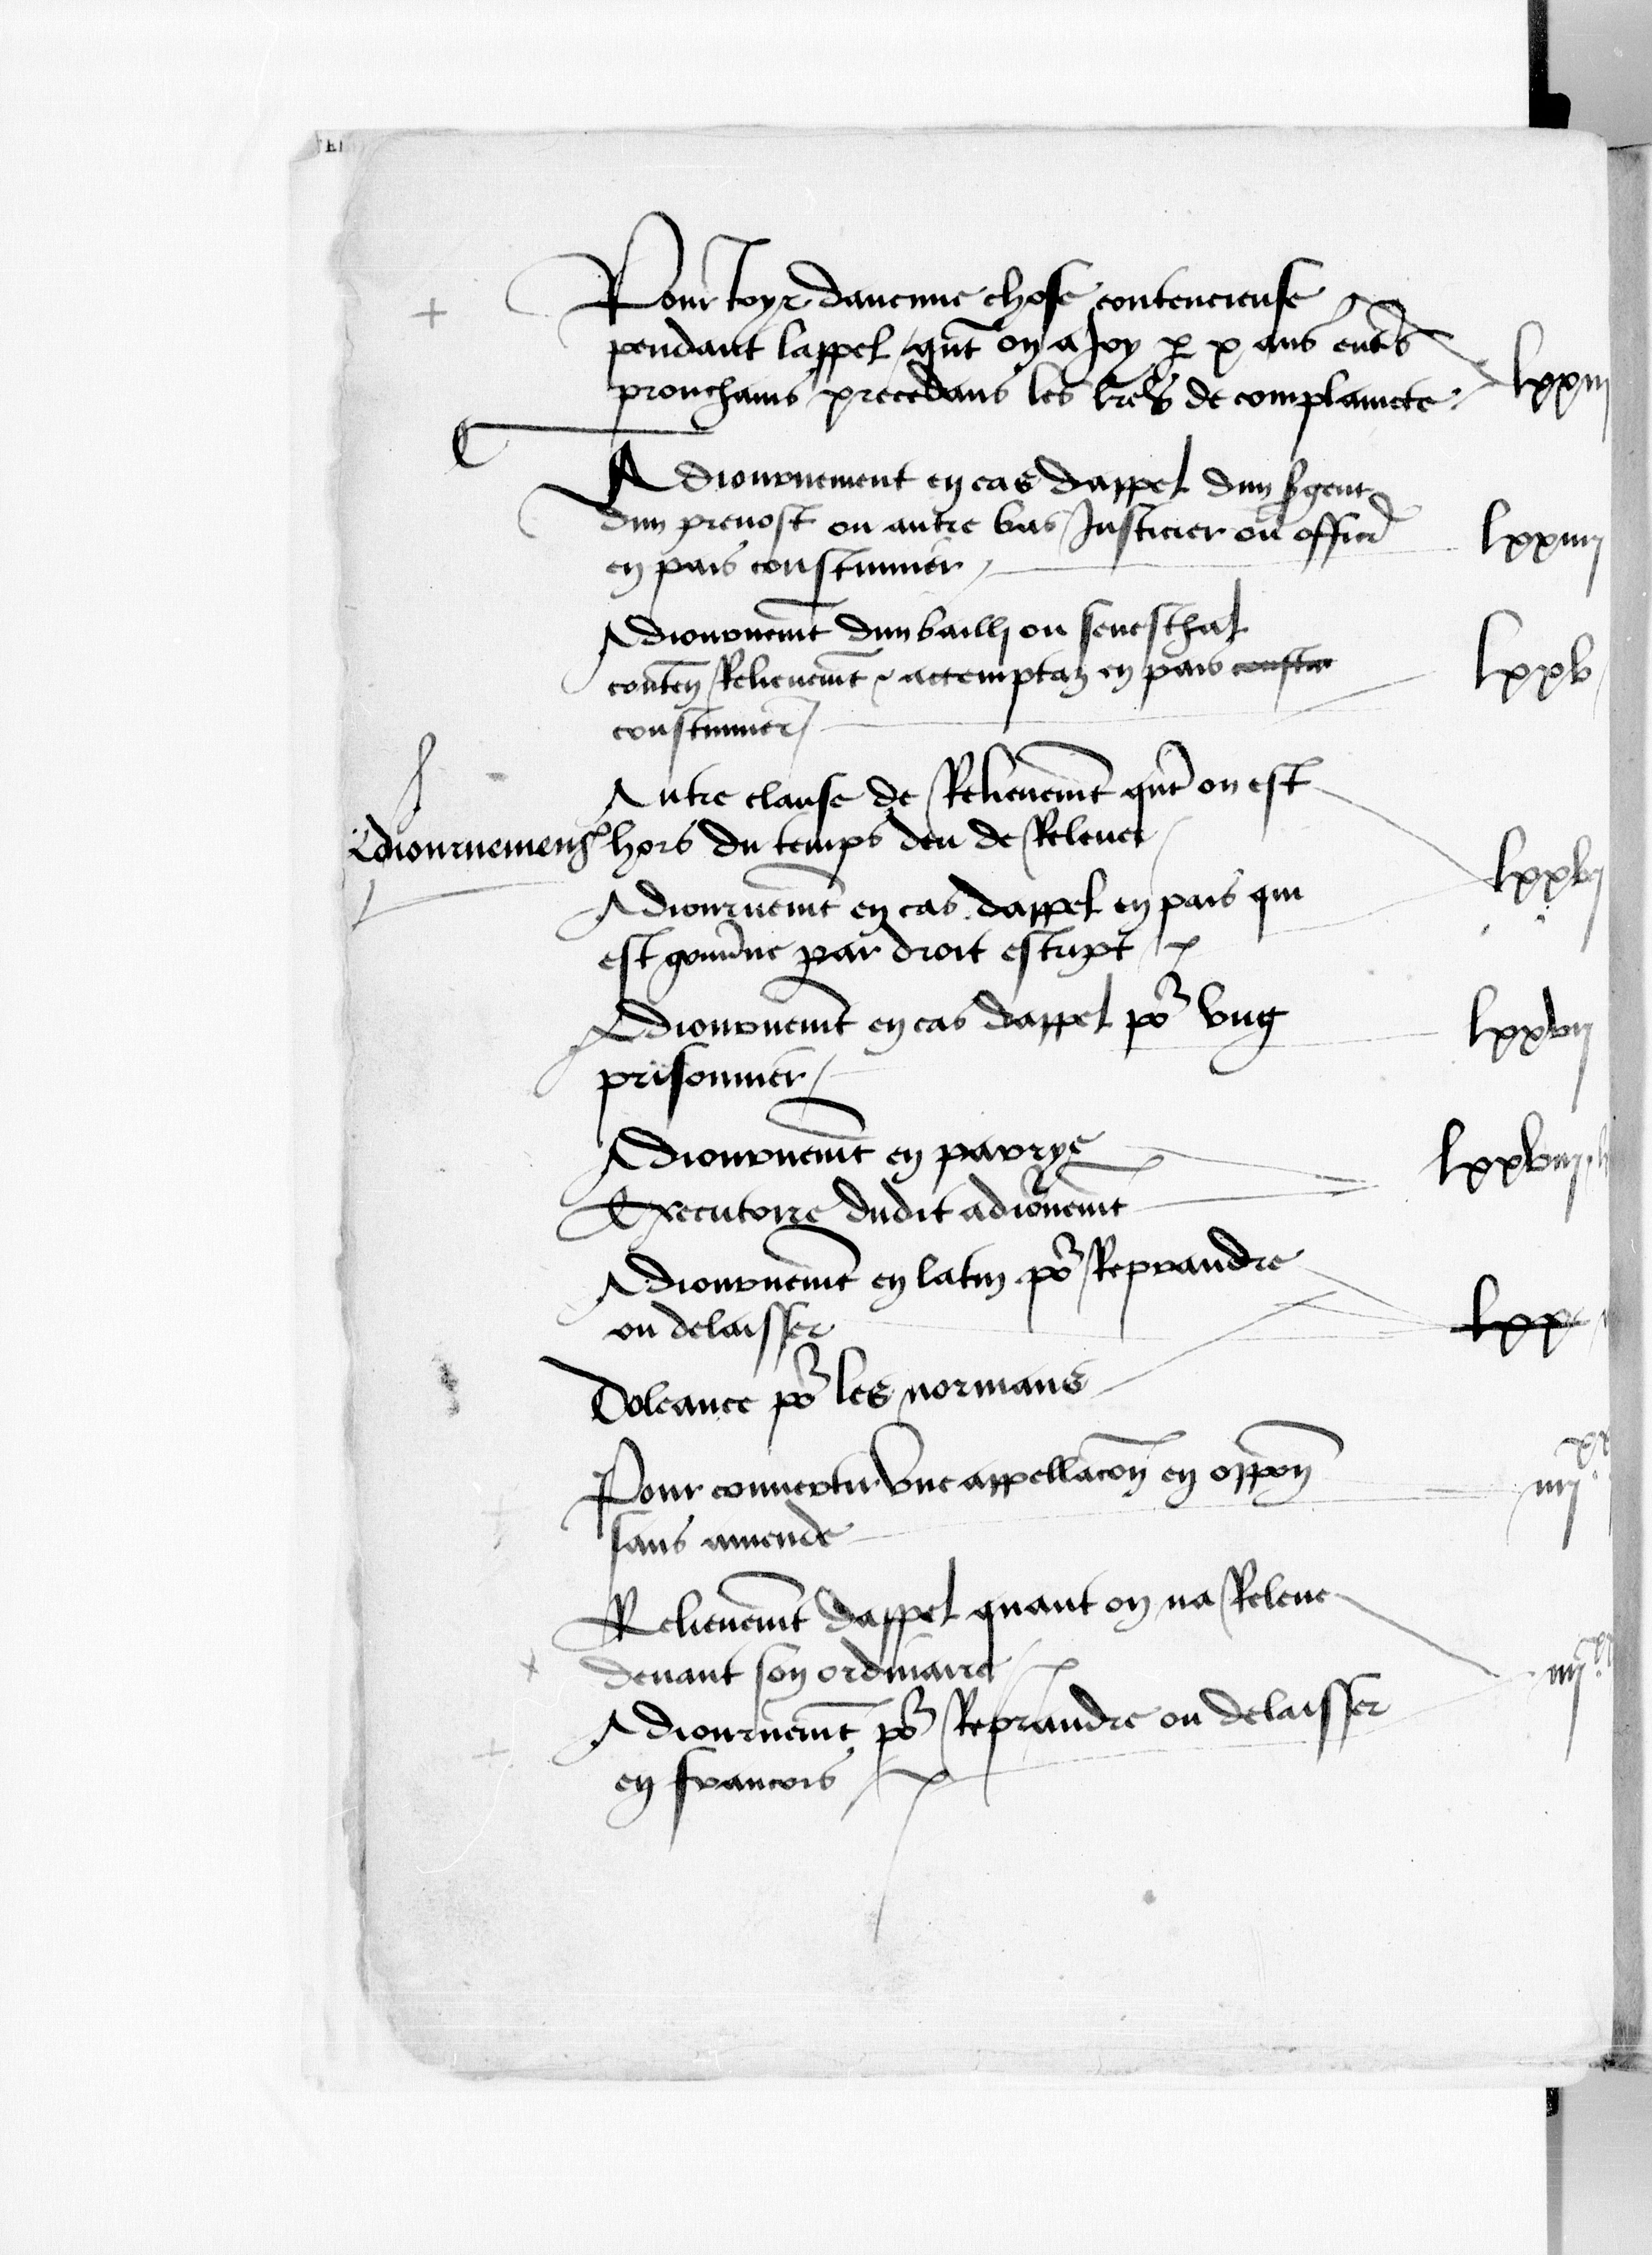 Pour Joyr daucune chose contencieuse
pendant lappel qnt on a Joy p x ans entrs
prouchains precedans les lres de complaincte lxxiii
Adiournement en cas dappel dun sgent
dun preuost ou autre bas Justicier ou officr lxxiiii
en pais coustumier
Adiournemt dun bailli ou seneschal
conten Relieuemt & actemptaz en pais coustu lxxv
coustumier
Autre clause de Relieuemt qnt on est
Adiournemens hors du temps deu de Releuer lxxvi
Adiournemt en cas dappel en pais qui
est gouuerne par droit escript
Adiournemt en cas dappel por vng lxxvii
prisonnier
Adiournemt en parrye lxxviii
Executoire dudit adiournemt
Adiournemt en latin por Reprandre
ou delaisser lxx
Doleance por les normans
Pour conuertir vne appellacon en oppon iiii
sans amende
Relieuemt dappel quant on na Releue
deuant son ordinaire iiii
Adiournemt por Reprandre ou delaisser
en francois